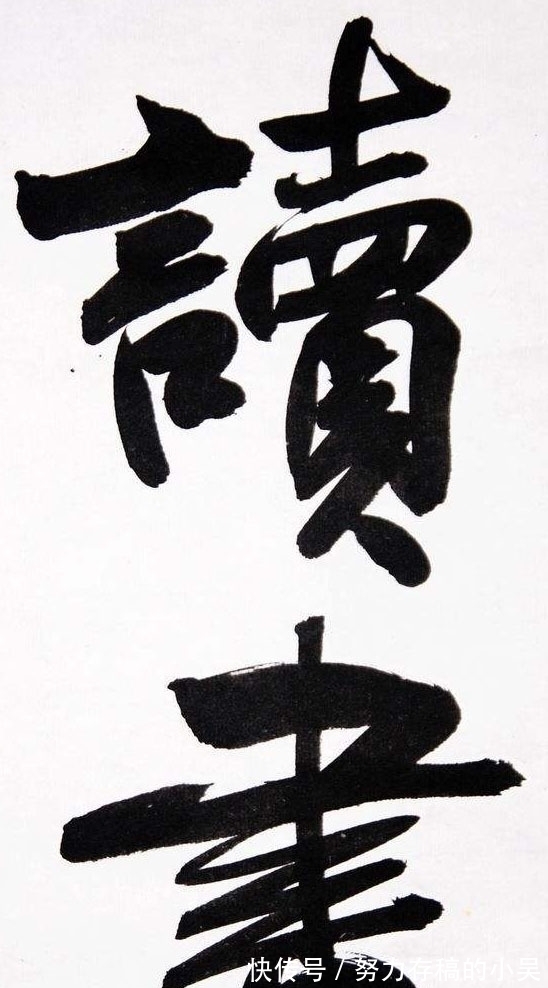 讀書
快传号/努力存稿的小吴